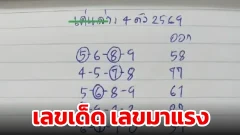 เด่นล่าง 4 ตัว 2569
ออก
5-6-8-9 58
4-5-7-8 77
5-6-8-9 61
เลขเด็ด เลขมาแรง